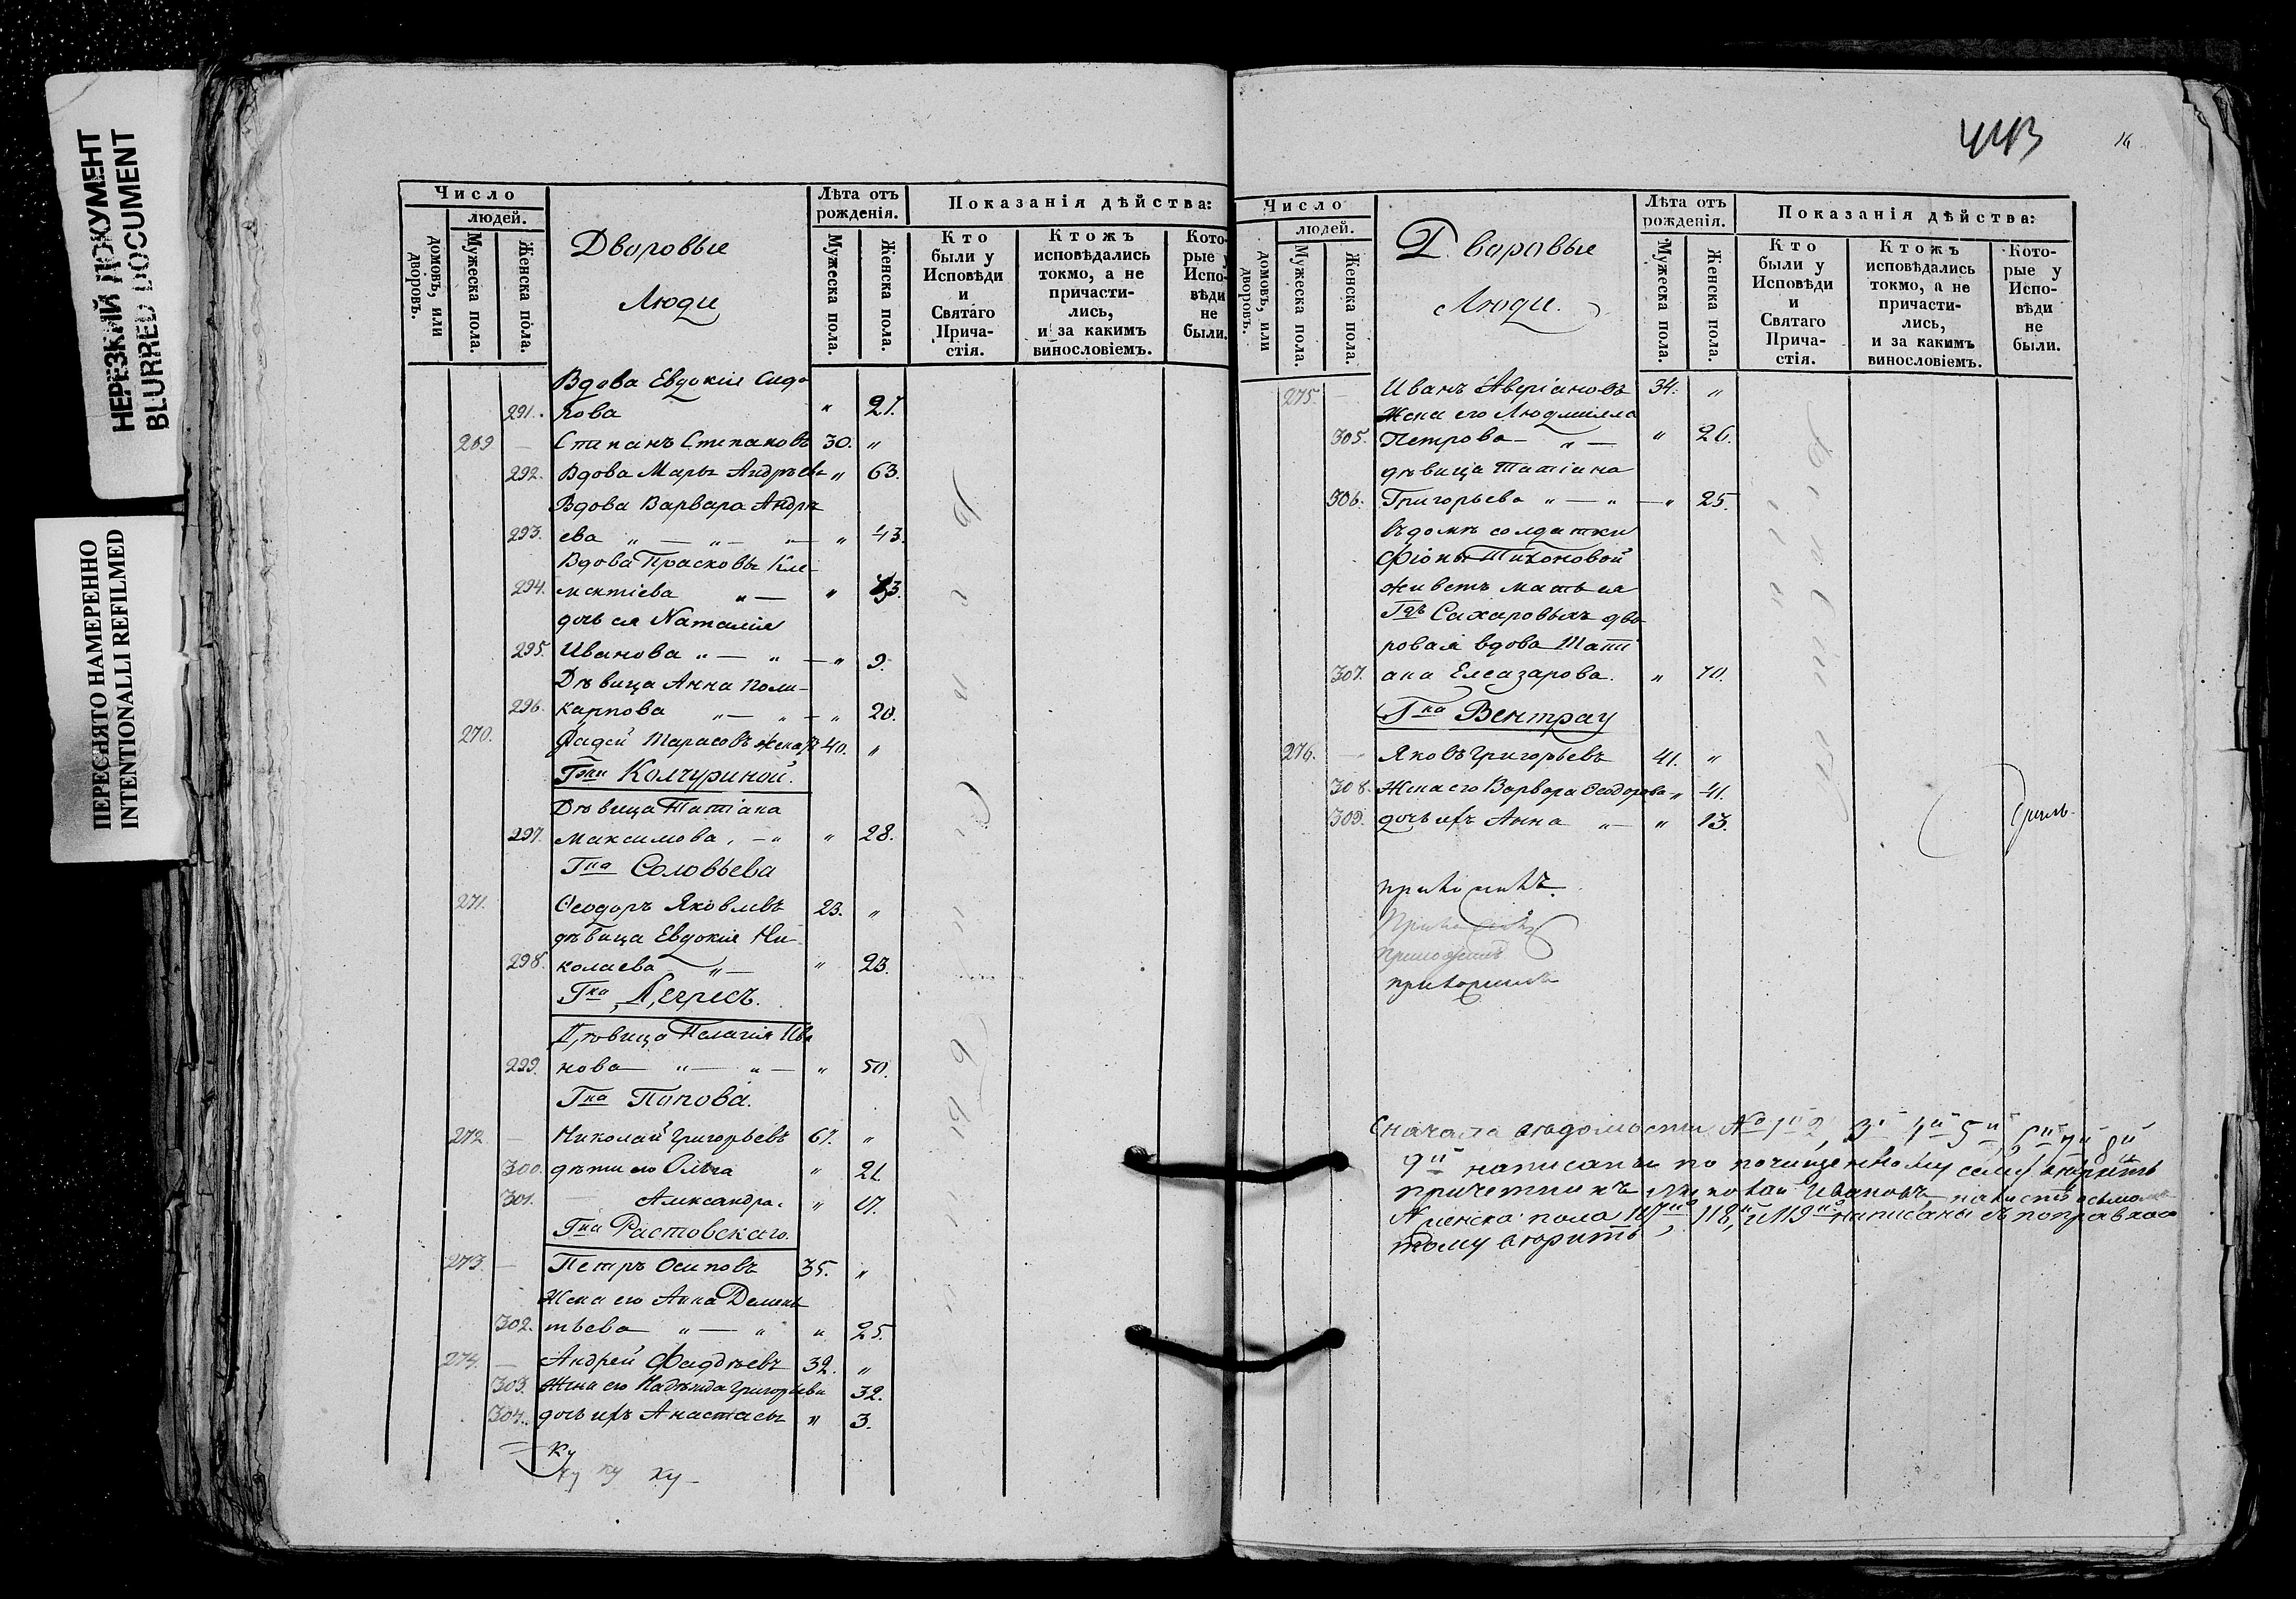 НЕРЕЗКИЙ ДОКУМЕНТ
BLURRED DOCUMENT
ПЕРЕСНЯТО НАМЕРЕННО
INTENTIONALLI REFILMED
Число
людей.
домовъ, или дворовъ.
Мужеска пола.
Женска пола.
Дворовые
Люди
Лѣта отъ рожденія.
Мужеска пола.
Женска пола.
Показанія дѣйства:
Кто были у Исповѣди и Святаго Прича-стія.
Ктожъ исповѣдались токмо, а не причасти-лись, и за какимъ винословіемъ.
Кото-рые у Испо-вѣди не были.
Вдова Евдокія Сидо
291. рова " 21.
269 — Степанъ Степановъ 30. "
292. Вдова Марья Андрѣева " 63.
Вдова Варвара Андрѣ
293. ева " — " — " — " 43.
Вдова Прасковья Кле-
294. ментіева " — " 33.
дочь ея Наталія
295. Иванова " — " — " 9.
Дѣвица Анна Поли-
296. карпова " — " — " 20.
270. Фадей Тарасовъ женатъ 40. "
Гжи Колчуриной.
Дѣвица Татіана
297. Максимова, — " " 28.
Гна Соловьева
271. Ѳеодоръ Яковлевъ 23. "
дѣвица Евдокія Ни-
298. колаева " — " 23.
Гна
Дѣвица Пелагія Ива
299. нова — " — " — " 50.
Гна Попова.
272 — Николай Григорьевъ 67. "
300. дѣти его Ольга " 21.
301. — Александра. " 17.
Гна Растовскаго.
273. — Петръ Осиповъ 35. "
Жена его Анна Демень
302. тьева " — " " 25.
274. — Андрей Фадѣевъ 32. "
303. Жена его Надежда Григорьева 32.
304. дочь ихъ Анастасья " 3.
Ку
ку ку ку
443
16
Число
людей.
домовъ, или дворовъ.
Мужеска пола.
Женска пола.
Дворовые
Люди.
Лѣта отъ рожденія.
Мужеска пола.
Женска пола.
Показанія дѣйства:
Кто были у Исповѣди и Святаго Прича-стія.
Ктожъ исповѣдались токмо, а не причасти-лись, и за какимъ винословіемъ.
Кото-рые у Испо-вѣди не были.
275. — Иванъ Аверіановъ 34. "
Жена его Людмилла
305. Петрова — " — " 26.
дѣвица Татіана
306. Григорьева " — " — " 25.
въ домѣ солдатки
Фіоны Тихоновой
живетъ мать ея
Гдъ Сахаровыхъ дво
ровая вдова Татi
307. ана Елеазарова. " 70.
Гна Вентрау
276. — Яковъ Григорьевъ 41. "
308. Жена его Варвара Ѳеодорова " 41.
309. дочь ихъ Анна " — " 13.
Сначала вѣдомости № 1й 2, 3й 4й 5й, 6й 7й 8й
9й написаны по почищенному сему вѣрить
причетникъ Иванов
женска пола 117й, 118й, и 119й написаны съ поправкою
тому вѣрить